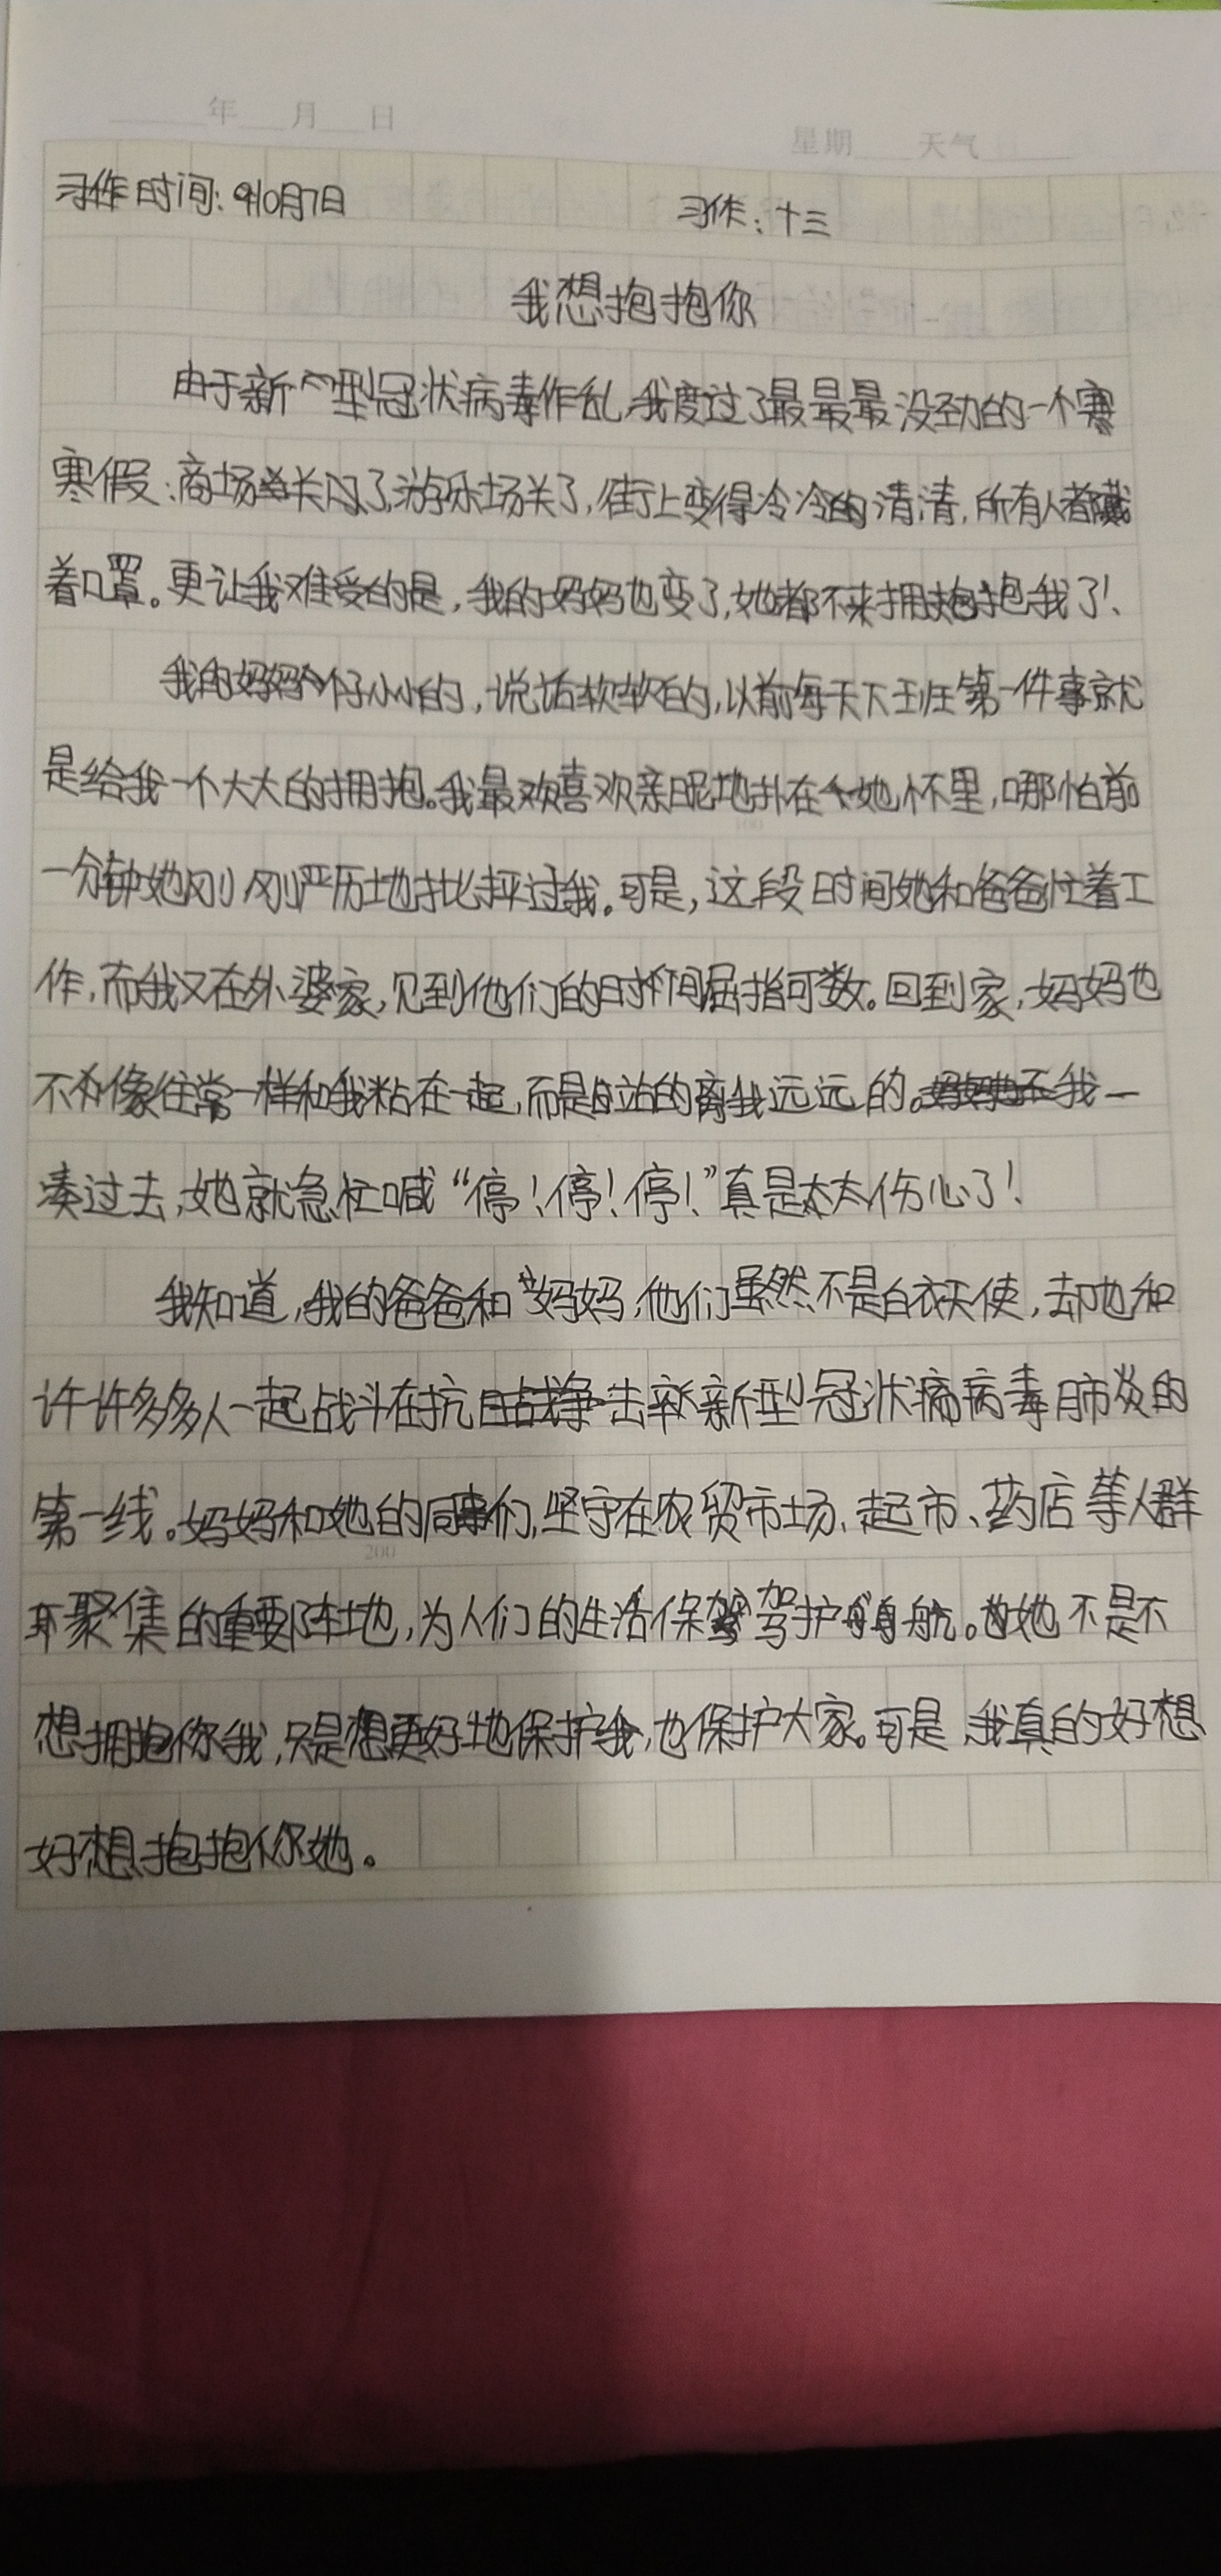 年 月 日
星期 天气
习作时间:10月7日 习作:十三
我想抱抱你
由于新型冠状病毒作乱,我度过了最最最没劲的一个
寒假:商场关闪了,游乐场关了,街上变得冷冷清清,所有人都戴
着口罩。更让我难受的是,我的妈妈也变了,她都不来拥抱我了!
我的妈妈个子小小的,说话软软的,以前每天下班第一件事就
是给我一个大大的拥抱。我最喜欢亲昵地扑在她怀里,哪怕前
一分钟她刚刚严历地批抨过我。可是,这段时间她和爸爸忙着工
作,而我又在外婆家,见到他们的时间屈指可数。回到家,妈妈也
不像往常一样和我粘在一起,而是站的离我远远的。我一
凑过去,她就急忙喊“停!停!停!”真是太伤心了!
我知道,我的爸爸和妈妈,他们虽然不是白衣天使,却也和
许许多多人一起战斗在抗击新型冠状病毒肺炎的
第一线。妈妈和她的同事们,坚守在农贸市场、起市、药店等人群
聚集的重要阵地,为人们的生活保驾护航。她不是不
想拥抱我,只是想更好地保护我,也保护大家。可是,我真的好想
好想抱抱她。
200